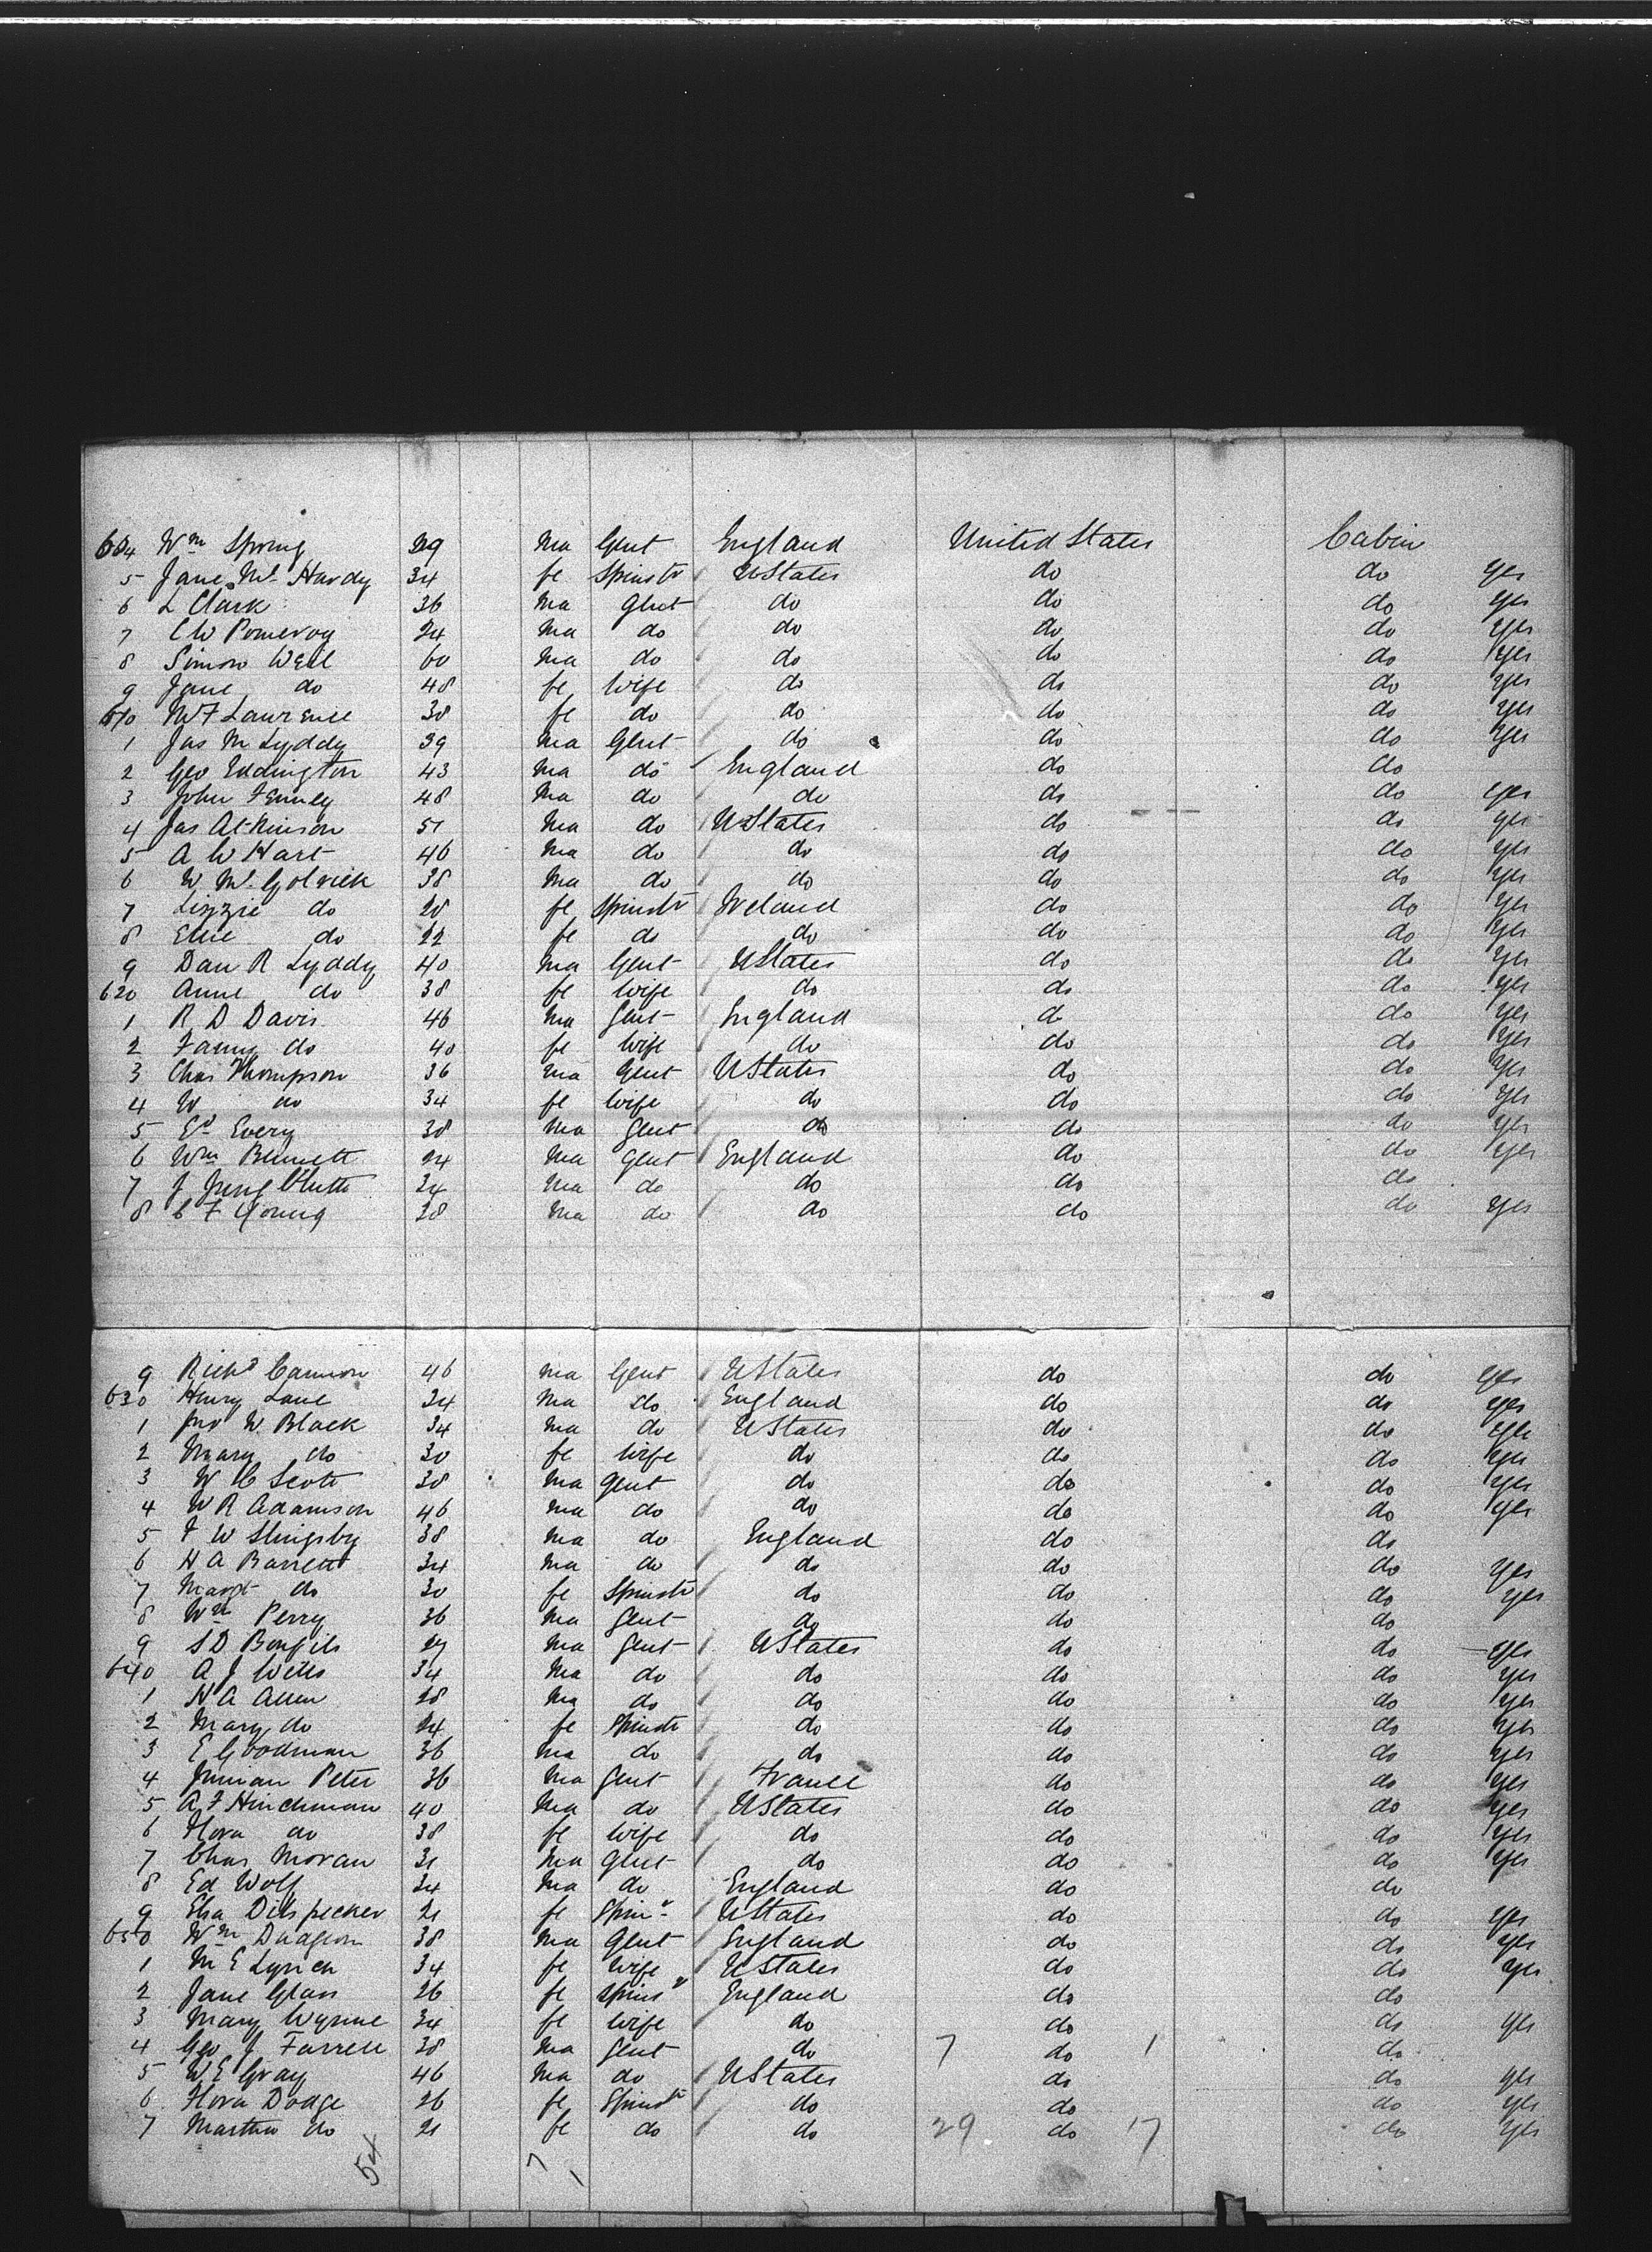 604 Wm Spring 29 Ma Gent England United States Cabin
5 Jane Mc Hardy 34 fe Spinstr UStates do do yes
6 L Clark 36 Ma Gent do do do yes
7 C W Pomeroy 24 Ma do do do do yes
8 Simon Weil 60 Ma do do do do yes
9 Jane do 48 fe Wife do do do yes
610 M F Lawrence 38 fe do do do do yes
1 Jas M Lyddy 39 Ma Gent do do do yes
2 Geo Eddington 43 Ma do England do do
3 John Fennely 48 Ma do do do do yes
4 Jas Atkinson 51 Ma do UStates do do yes
5 A W Hart 46 Ma do do do do yes
6 W Mc Golrick 38 Ma do do do do yes
7 Lizzie do 28 fe Spinstr Ireland do do yes
8 Ellie do 22 fe do do do do yes
9 Dan R Lyddy 40 Ma Gent UStates do do yes
620 Anne do 38 fe Wife do do do yes
1 R D Davis 46 Ma Gent England do do yes
2 Fanny do 40 fe Wife do do do yes
3 Chas Thompson 36 Ma Gent UStates do do yes
4 W do 34 fe Wife do do do yes
5 Ed Every 38 Ma Gent do do do yes
6 Wm Bennett 24 Ma Gent England do do yes
7 J 24 Ma do do do do
8 C F Young 28 Ma do do do do yes
9 Richd Cannon 46 Ma Gent UStates do do yes
630 Henry Lane 24 Ma do England do do yes
1 Jno W Black 34 Ma do UStates do do yes
2 Mary do 30 fe Wife do do do yes
3 W C Scott 38 Ma Gent do do do yes
4 W R Adamson 46 Ma do do do do yes
5 F W Slingsby 38 Ma do England do do
6 H A Barrett 34 Ma do do do do yes
7 Margt do 30 fe Spinstr do do do yes
8 Wm Perry 36 Ma Gent do do do
9 S D Bonfils 27 Ma Gent UStates do do yes
640 A J Wells 34 Ma do do do do yes
1 H A Allen 28 Ma do do do do yes
2 Mary do 24 fe Spinstr do do do yes
3 E Goodman 36 Ma do do do do yes
4 Peter 36 Ma Gent France do do yes
5 A F Hinchman 40 Ma do UStates do do yes
6 Flora do 38 fe Wife do do do yes
7 Chas Moran 31 Ma Gent do do do yes
8 Ed Wolf 34 Ma do England do do
9 Elsa Dillspecker 21 fe Spinr UStates do do yes
650 Wm Dudgeon 38 Ma Gent England do do yes
1 M E Lynch 34 fe Wife UStates do do yes
2 Jane Glass 26 fe Spinsr England do do
3 Mary Wynne 34 fe Wife do do do yes
4 Geo J Farrell 38 Ma Gent do 7 do 1 do
5 W E Gray 46 Ma do UStates do do yes
6 Flora Dodge 26 fe Spinstr do do do yes
7 Martha do 21 fe do do 29 do 17 do yes
54 7 1